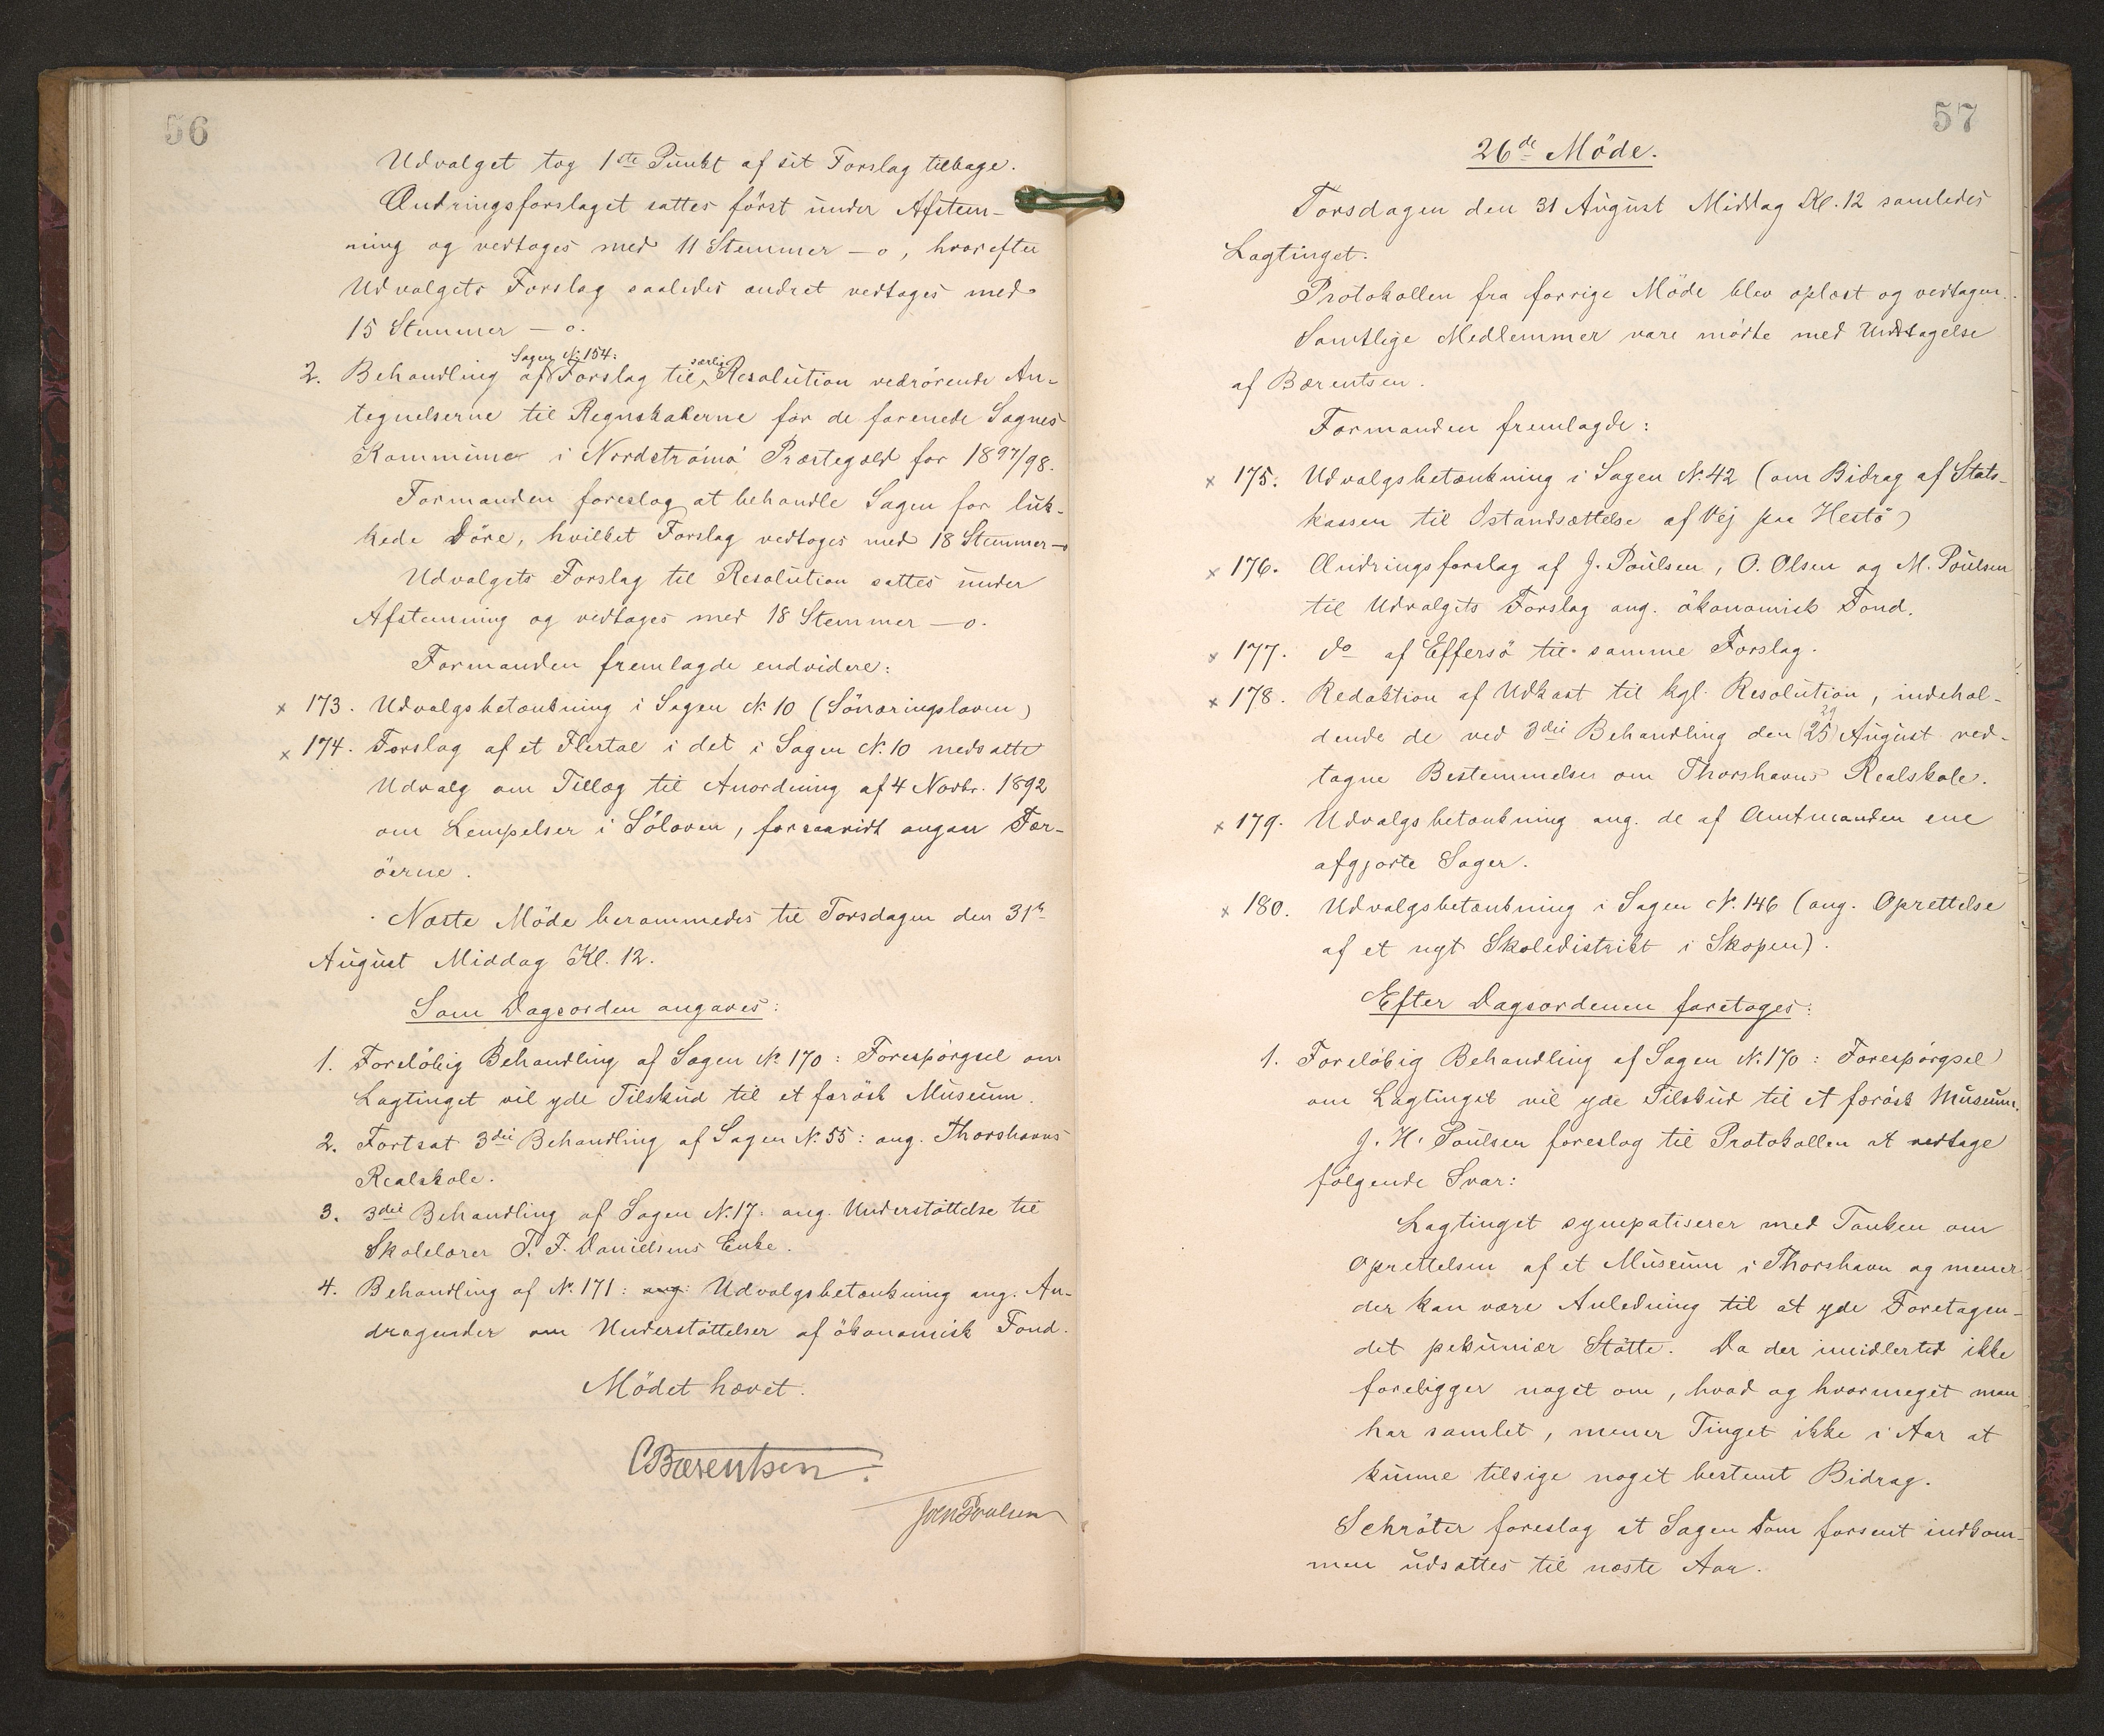 56
Udvalget tog 1ste Punkt af sit Forslag tilbage.
Ændringsforslaget sattes först under Afstem-
ning og vedtoges med 11 Stemmer – o, hvorefter
Udvalgets Forslag saaledes ændret vedtoges med
15 Stemmer – o.
Sagen N. 154:
særlig
2. Behandling af Forslag til Resolution vedrörende An-
tegnelserne til Regnskaberne for de forenede Sognes
Kommuner i Nordströmö Præstegæld for 1897/98.
Formanden foreslog at behandle Sagen for luk-
kede Döre, hvilket Forslag vedtoges med 18 Stemmer – o
Udvalgets Forslag til Resolution sattes under
Afstemning og vedtoges med 18 Stemmer – o.
Formanden fremlagde endvidere:
x 173. Udvalgsbetænkning i Sagen N. 10 (Sönæringsloven)
x 174. Forslag af et Flertal i det i Sagen N. 10 nedsatte
Udvalg om Tillæg til Anordning af 4 Novbr. 1892
om Lempelser i Söloven, forsaavidt angaar Fær-
öerne.
Næste Möde berammedes til Torsdagen den 31te
August Middag Kl. 12.
Som Dagsorden angaves:
1. Forelöbig Behandling af Sagen N. 170: Forespörgsel om
Lagtinget vil yde Tilskud til et færösk Museum.
2. Fortsat 3die Behandling af Sagen N. 55: ang. Thorshavns
Realskole.
3. 3die Behandling af Sagen N. 17: ang. Understöttelse til
Skolelærer T. F. Danielsens Enke.
4. Behandling af N. 171: ang: Udvalgsbetænkning ang. An-
dragender om Understöttelser af ökonomisk Fond.
Mödet hævet.
CBærentsen.
Joen Poulsen
57
26de Möde.
Torsdagen den 31 August Middag Kl. 12 samledes
Lagtinget.
Protokollen fra forrige Möde blev oplæst og vedtagen.
Samtlige Medlemmer vare mödte med Undtagelse
af Bærentsen.
Formanden fremlagde:
x 175. Udvalgsbetænkning i Sagen N. 42 (om Bidrag af Stats-
kassen til Istandsættelse af Vej paa Hestö)
x 176. Ændringsforslag af J. Poulsen, O. Olsen og M. Poulsen
til Udvalgets Forslag ang. ökonomisk Fond.
x 177. do af Effersö til samme Forslag.
x 178. Redaktion af Udkast til kgl. Resolution, indehol-
29
dende de ved 3die Behandling den (25) August ved-
tagne Bestemmelser om Thorshavns Realskole.
x 179. Udvalgsbetænkning ang. de af Amtmanden ene
afgjorte Sager.
x 180. Udvalgsbetænkning i Sagen N. 146 (ang. Oprettelse
af et nyt Skoledistrikt i Skopen).
Efter Dagsordenen foretoges:
1. Forelöbig Behandling af Sagen N. 170: Forespörgsel
om Lagtinget vil yde Tilskud til et færösk Museum.
J. H. Poulsen foreslog til Protokollen at vedtage
fölgende Svar:
Lagtinget sympatiserer med Tanken om
Oprettelsen af et Museum i Thorshavn og mener
der kan være Anledning til at yde Foretagen-
det pekuniær Stötte. Da der imidlertid ikke
foreligger noget om, hvad og hvormeget man
har samlet, mener Tinget ikke i Aar at
kunne tilsige noget bestemt Bidrag.
Schröter foreslog at Sagen som forsent indkom-
men udsættes til næste Aar.